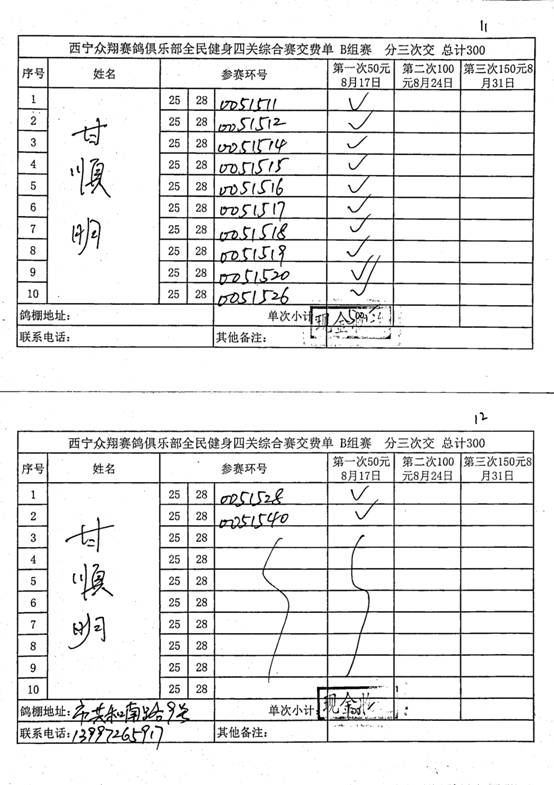 11
西宁众翔赛鸽俱乐部全民健身四关综合赛交费单 B组赛 分三次交 总计300
序号 姓名 参赛环号 第一次50元8月17日 第二次100元8月24日 第三次150元8月31日
甘順明
1 25 28 0051511 ✓
2 25 28 0051512 ✓
3 25 28 0051514 ✓
4 25 28 0051515 ✓
5 25 28 0051516 ✓
6 25 28 0051517 ✓
7 25 28 0051518 ✓
8 25 28 0051519 ✓
9 25 28 0051520 ✓
10 25 28 0051526 ✓
鸽棚地址: 单次小计: 现金 500
联系电话: 其他备注:
12
西宁众翔赛鸽俱乐部全民健身四关综合赛交费单 B组赛 分三次交 总计300
序号 姓名 参赛环号 第一次50元8月17日 第二次100元8月24日 第三次150元8月31日
甘順明
1 25 28 0051528 ✓
2 25 28 0051540 ✓
3 25 28
4 25 28
5 25 28
6 25 28
7 25 28
8 25 28
9 25 28
10 25 28
鸽棚地址:市共和南路9号 单次小计: 现金
联系电话:13997265917 其他备注: